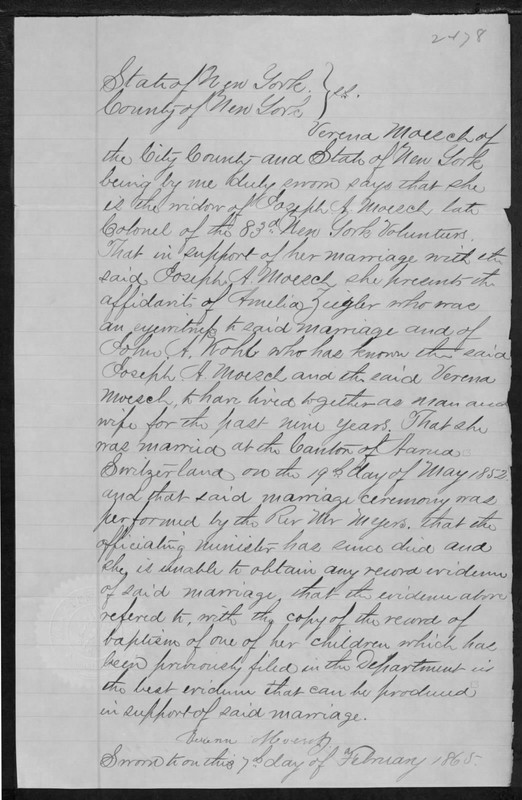 2478
State of New York }
County of New York } ss.
Verena Moesch of
the City County and State of New York
being by me duly sworn says that she
is the widow of Joseph A. Moesch late
Colonel of the 83d New York Volunteers.
That in support of her marriage with the
said Joseph A Moesch, she presents the
affidavits of Amelia Zeigler who was
an eyewitness to said marriage and of
John A. Wohl who has known the said
Joseph A. Moesch and the said Verena
Moesch, to have lived together as man and
wife for the past nine years. That she
was married at the Canton of
Switzerland on the 19th day of May 1852
and that said marriage ceremony was
performed by the Rev Mr Meyers. that the
officiating minister has since died and
she is unable to obtain any record evidence
of said marriage, that the evidence above
refered to, with the copy of the record of
baptism of one of her children which has
been previously filed in the Department is
the best evidence that can be produced
in support of said marriage.
Moesch
Sworn to on this 7th day of February 1865.